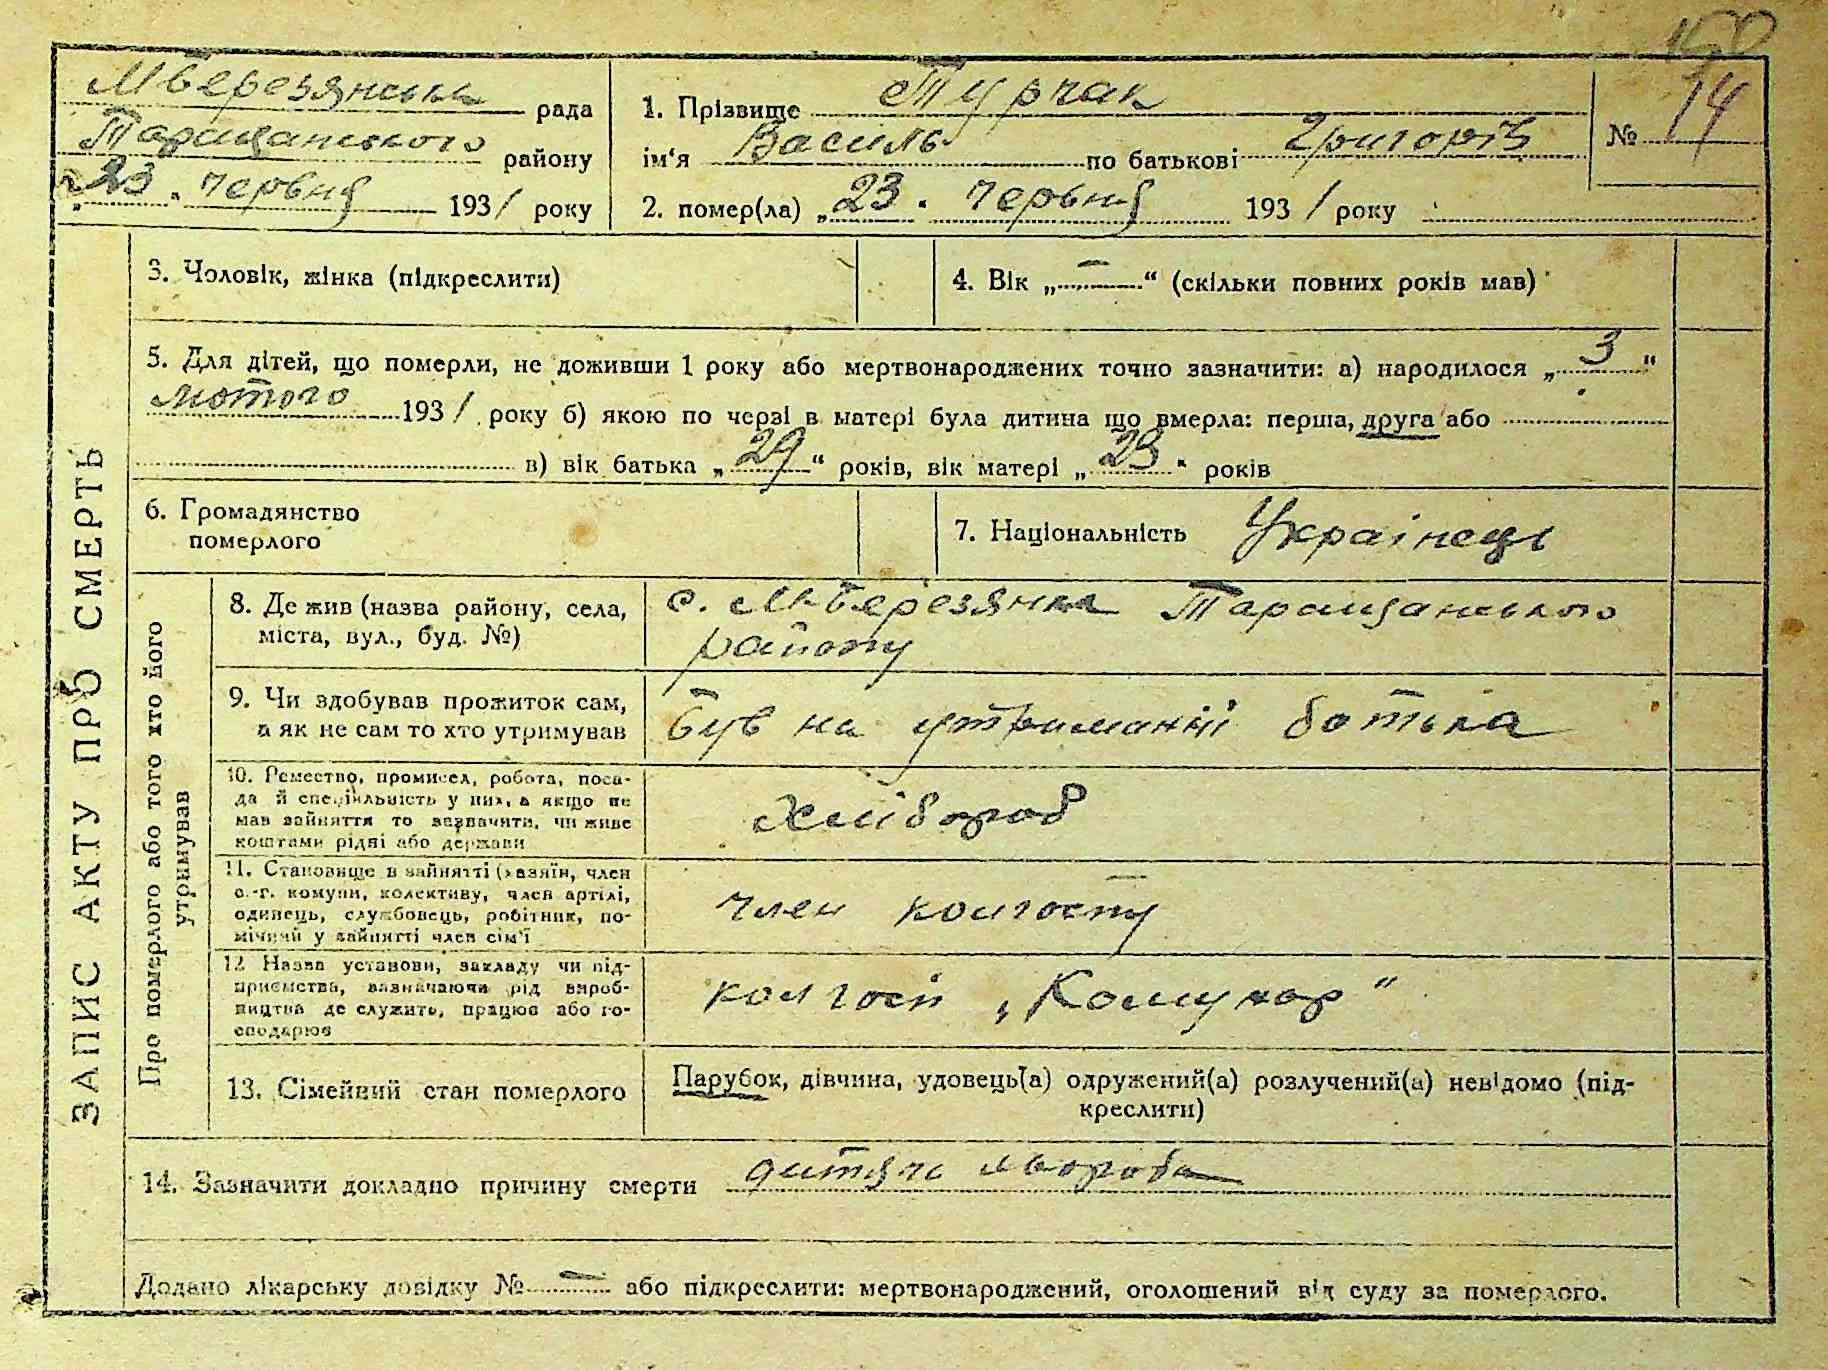 150
МБерезянська рада
Таращанського району
„23" червня 1931 року
1. Прізвище Турчак
ім'я Василь по батькові Григорів
2. помер(ла) „23" червня 1931 року
№ 14
ЗАПИС АКТУ ПРО СМЕРТЬ
3. Чоловік, жінка (підкреслити)
4. Вік „—" (скільки повних років мав)
5. Для дітей, що померли, не доживши 1 року або мертвонароджених точно зазначити: а) народилося „3"
лютого 1931 року б) якою по черзі в матері була дитина що вмерла: перша, друга або
в) вік батька „29" років, вік матері „23" років
6. Громадянство
померлого
7. Національність Українець
Про померлого або того хто його
утримував
8. Де жив (назва району, села,
міста, вул., буд. №)
с. МБерезянка Таращанського
району
9. Чи здобував прожиток сам,
а як не сам то хто утримував
був на утриманні батька
10. Ремество, промисел, робота, поса-
да й спеціяльність у них, а якщо не
мав зайняття то зазначити, чи живе
коштами рідні або держави
хлібороб
11. Становище в зайнятті (хазяїн, член
с.-г. комуни, колективу, член артілі,
одинець, службовець, робітник, по-
мічний у зайнятті член сім'ї
член колгоспу
12. Назва установи, закладу чи під-
приємства, зазначаючи рід вироб-
ництва де служить, працює або го-
сподарює
колгосп „Комунар"
13. Сімейний стан померлого
Парубок, дівчина, удовець(а) одружений(а) розлучений(а) невідомо (під-
креслити)
14. Зазначити докладно причину смерти дитяча хвороба
Додано лікарську довідку № — або підкреслити: мертвонароджений, оголошений від суду за померлого.